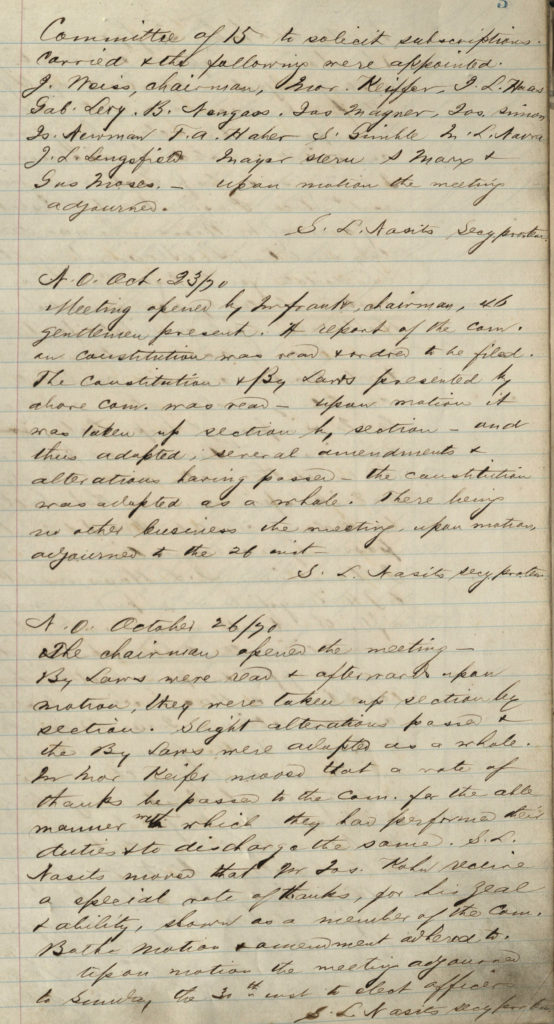 3
Committee of 15 to solicit subscriptions.
Carried & the following were appointed.
J. Weiss, chairman, Mor. Keiffer, I. L. Haas
Gab. Levy. B. Nengass. Jos Magner, Jos. Simon
Is. Newman F. A. Haber S. Gumble M. L. Navra
J. L. Lengsfield Mayer Stern S Marx &
Gus Moses. — upon motion the meeting
adjourned.
S. L. Nasits Secy protem
N. O. Oct. 23/70
Meeting opened by Mr Frank, chairman, 46
gentlemen present. A report of the com.
on constitution was read & ordred to be filed.
The constitution & By Laws presented by
above com. was read — upon motion it
was taken up section by section — and
thus adopted, several amendments &
alterations having passed — the constitution
was adopted as a whole. There being
no other business the meeting upon motion,
adjourned to the 26 inst —
S. L. Nasits secy protem
N. O. October 26/70
The chairman opened the meeting —
By Laws were read & afterwards upon
motion, they were taken up section by
section. Slight alterations passed &
the By Laws were adopted as a whole.
Mr Mor Keifer moved that a vote of
thanks be passed to the com. for the able
manner with which they had performed their
duties & to discharge the same. S. L.
Nasits moved that Mr Jos. Kohn receive
a special vote of thanks, for his zeal
& ability, shown as a member of the Com.
Both motion & amendment adhered to.
upon motion the meeting adjourned
to Sunday the 30th inst to elect officers
S. L. Nasits secy protem